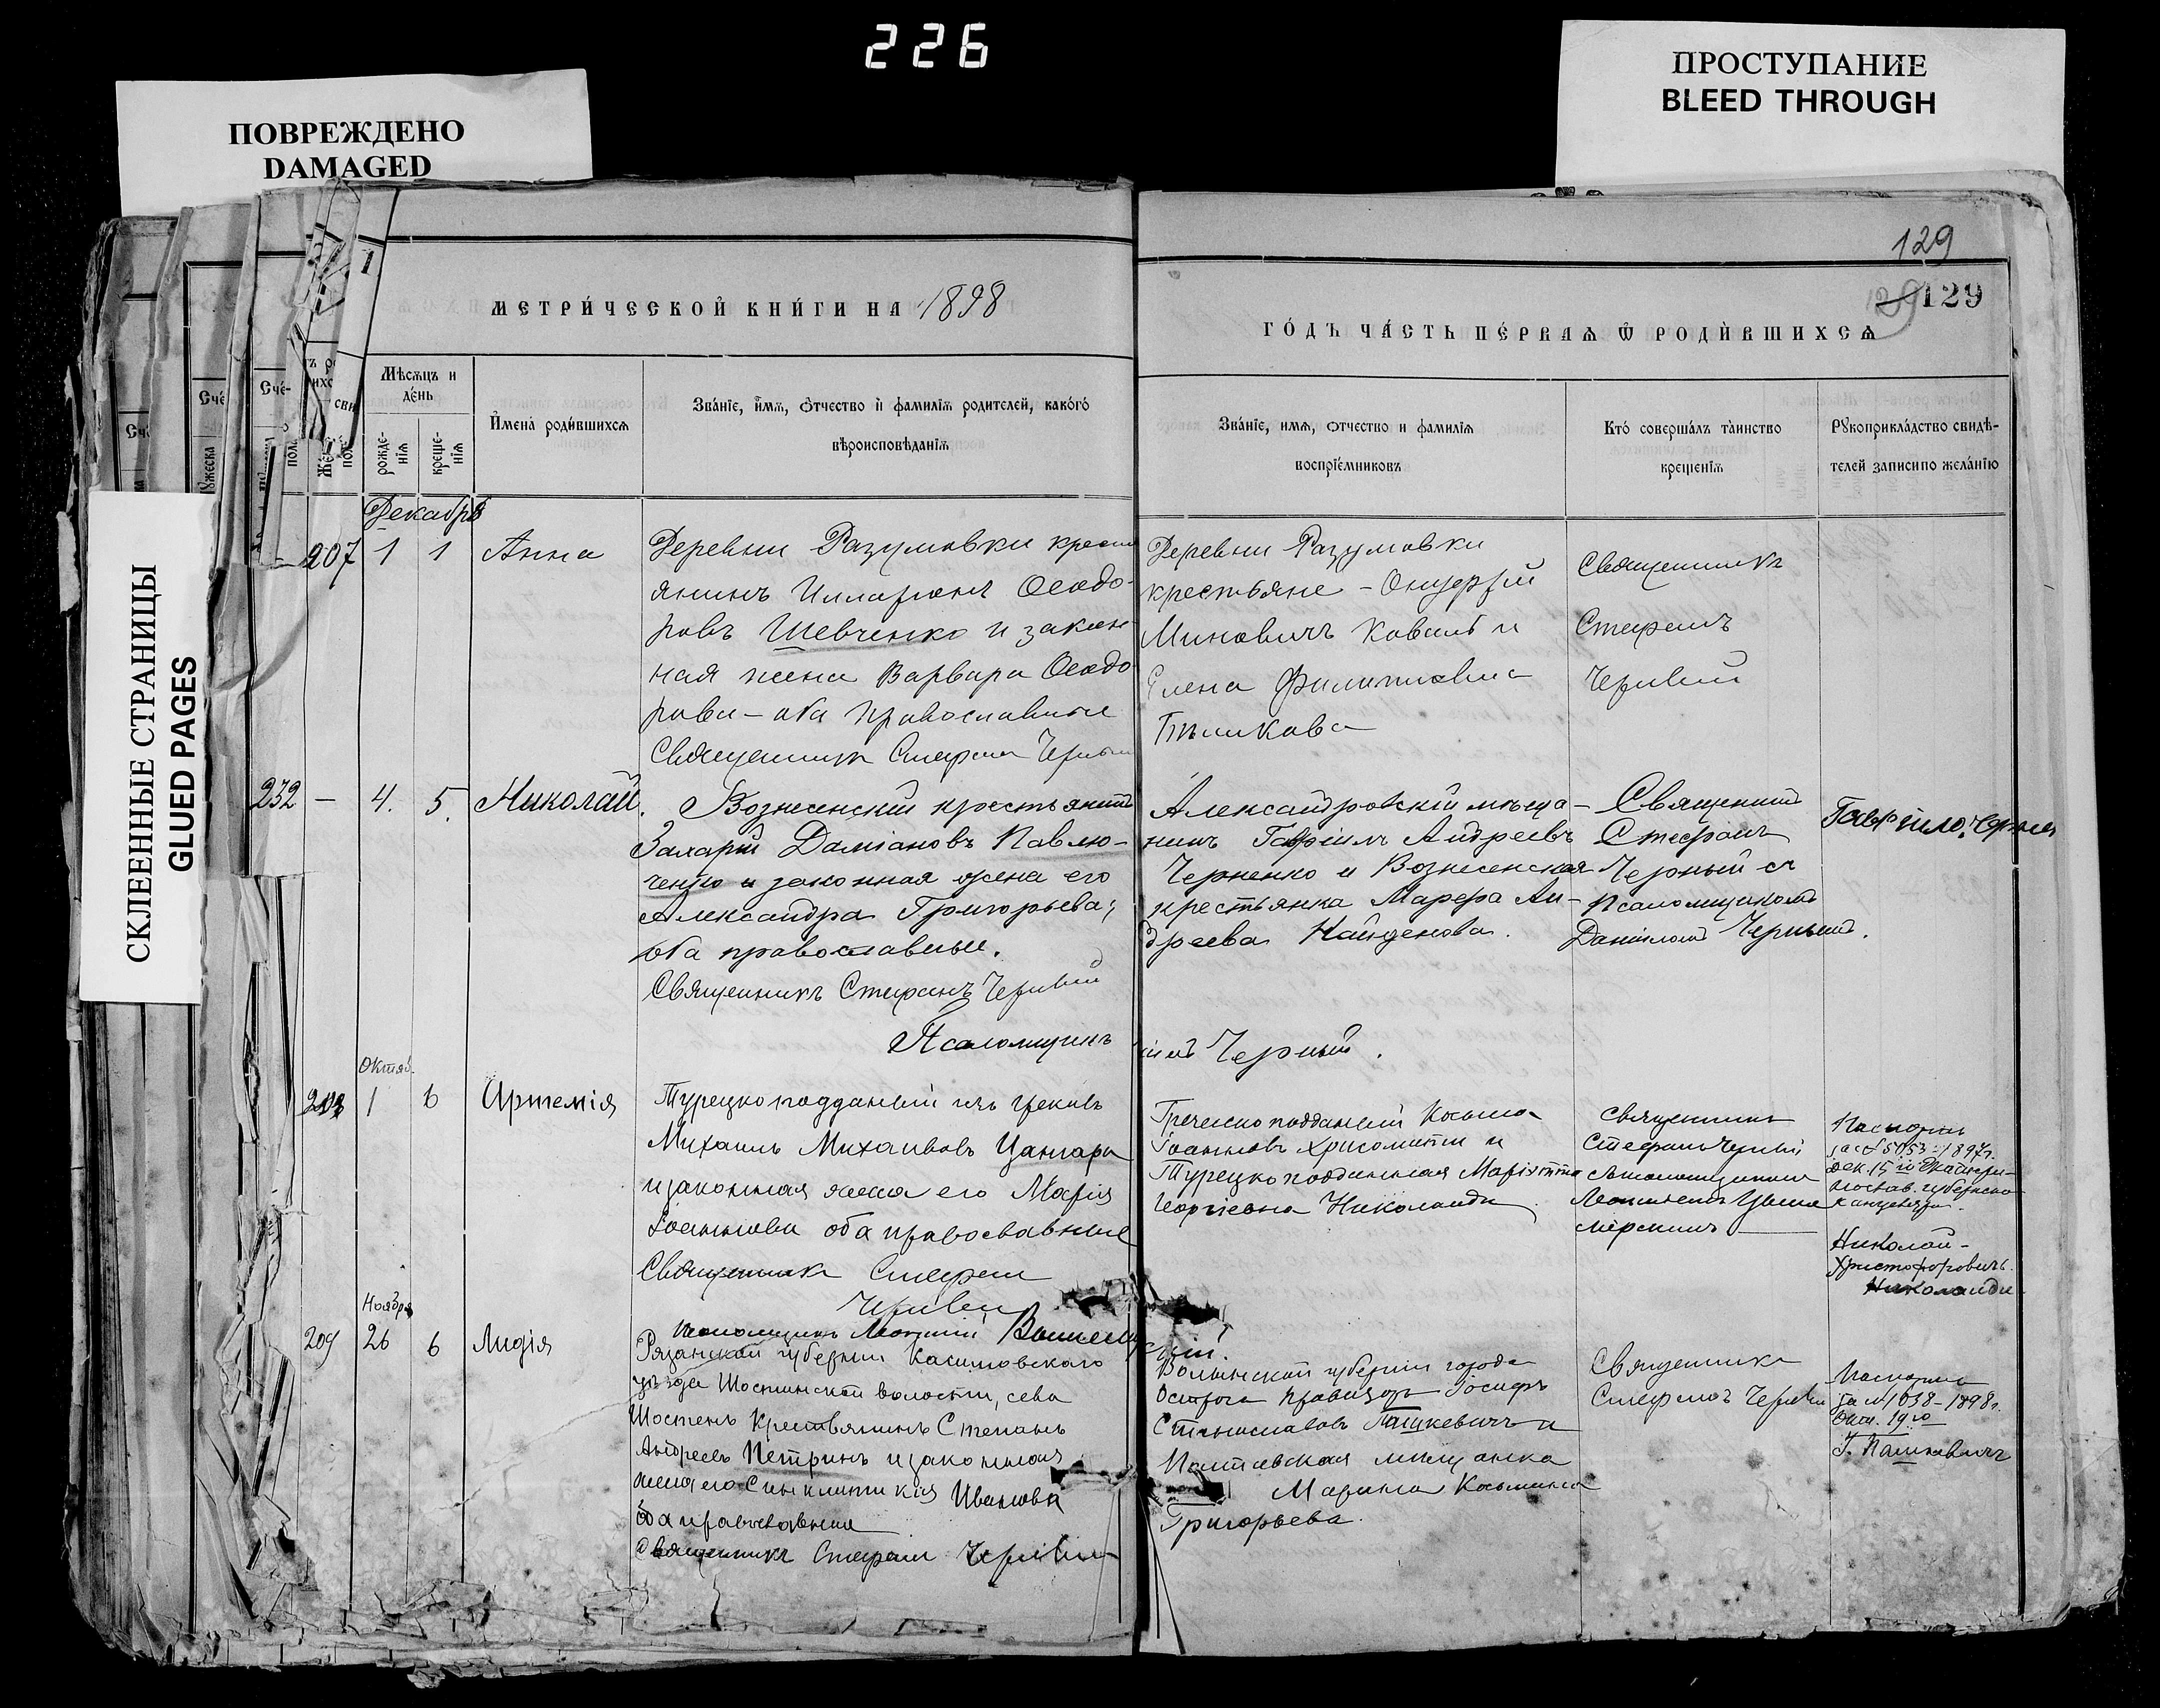 226
ПОВРЕЖДЕНО
DAMAGED
ПРОСТУПАНИЕ
BLEED THROUGH
СКЛЕЕННЫЕ СТРАНИЦЫ
GLUED PAGES
МЕТРИ́ЧЕСКОЙ КНИ́ГИ НА 1898
129
129
ГО́ДЪ ЧА́СТЬ ПЕ́РВАѦ Ѿ РОДИ́ВШИХСѦ
Мѣсѧцъ и
де́нь
рожде-
нїѧ
креще-
нїѧ
И҆мена̀ роди́вшихсѧ
Зва́нїе, и҆́мѧ, ѻ҆́тчество и҆ фамилїѧ родителей, како́гѡ
вѣроисповѣданїѧ
Зва́нїе, имѧ, ѻтчество и фамилїѧ
воспрїе́мниковъ
Кто́ соверша́лъ та̀инство
крещенїѧ
Рꙋкоприкла́дство свидѣ-
телей записи по жела́нїю
Декабрь
207 1 1 Анна
Деревни Разумовки кресть
янинъ Илларіонъ Ѳеодо-
ровъ Шевченко и закон
ная жена Варвара Ѳеодо
рова - оба православные
Священникъ Стефанъ Черный
Деревни Разумовки
крестьяне - Онуфрій
Миновичъ Коваль и
Елена Филипповна
Священникъ
Стефанъ
Черный
232 — 4. 5. Николай.
Вознесенскій крестьянинъ
Захарій Даміановъ Павлю-
ченко и законная жена его
Александра Григорьева;
оба православные.
Священникъ Стефанъ Черный
Псаломщикъ
Александровскій мѣща-
нинъ Гавріилъ Андреевъ
Черненко и Вознесенская
крестьянка Марфа Ан-
дреева Найденова.
Священникъ
Стефанъ
Черный съ
псаломщикомъ
Даніиломъ Чернымъ.
Черный.
Октяб.
208 1 6 Артемія
Турецкоподданный изъ грековъ
Михаилъ Михаиловъ Цангари
и законная жена его Марія
Іоаннова оба православные
Священникъ Стефанъ
Черный
Псаломщикъ Леонтій
Греческоподданный Косьма
Іоанновъ и
Турецкоподданная
Георгіевна Николаиди
Священникъ
Стефанъ Черный
Паспортъ
за № 5053 - 1897г.
Дек. 15
Николай
Христофоровичъ
Николаиди
Ноября
209 26 6 Лидія
Рязанской губерніи Касимовскаго
уѣзда Шостинской волости, села
Шостенъ крестьянинъ Степанъ
Андреевъ Петринъ и законная
жена его Синклитикія Иванова
оба православные
Священникъ Стефанъ Черный
Волынской губерніи города
Острога провизоръ Іосифъ
Станиславовъ Пашкевичъ и
Полтавская мѣщанка
Марина Косьмина
Григорьева.
Священникъ
Стефанъ Черный
Паспортъ
за № 1038 - 1898г.
Окт. 19го
І. Пашкевичъ